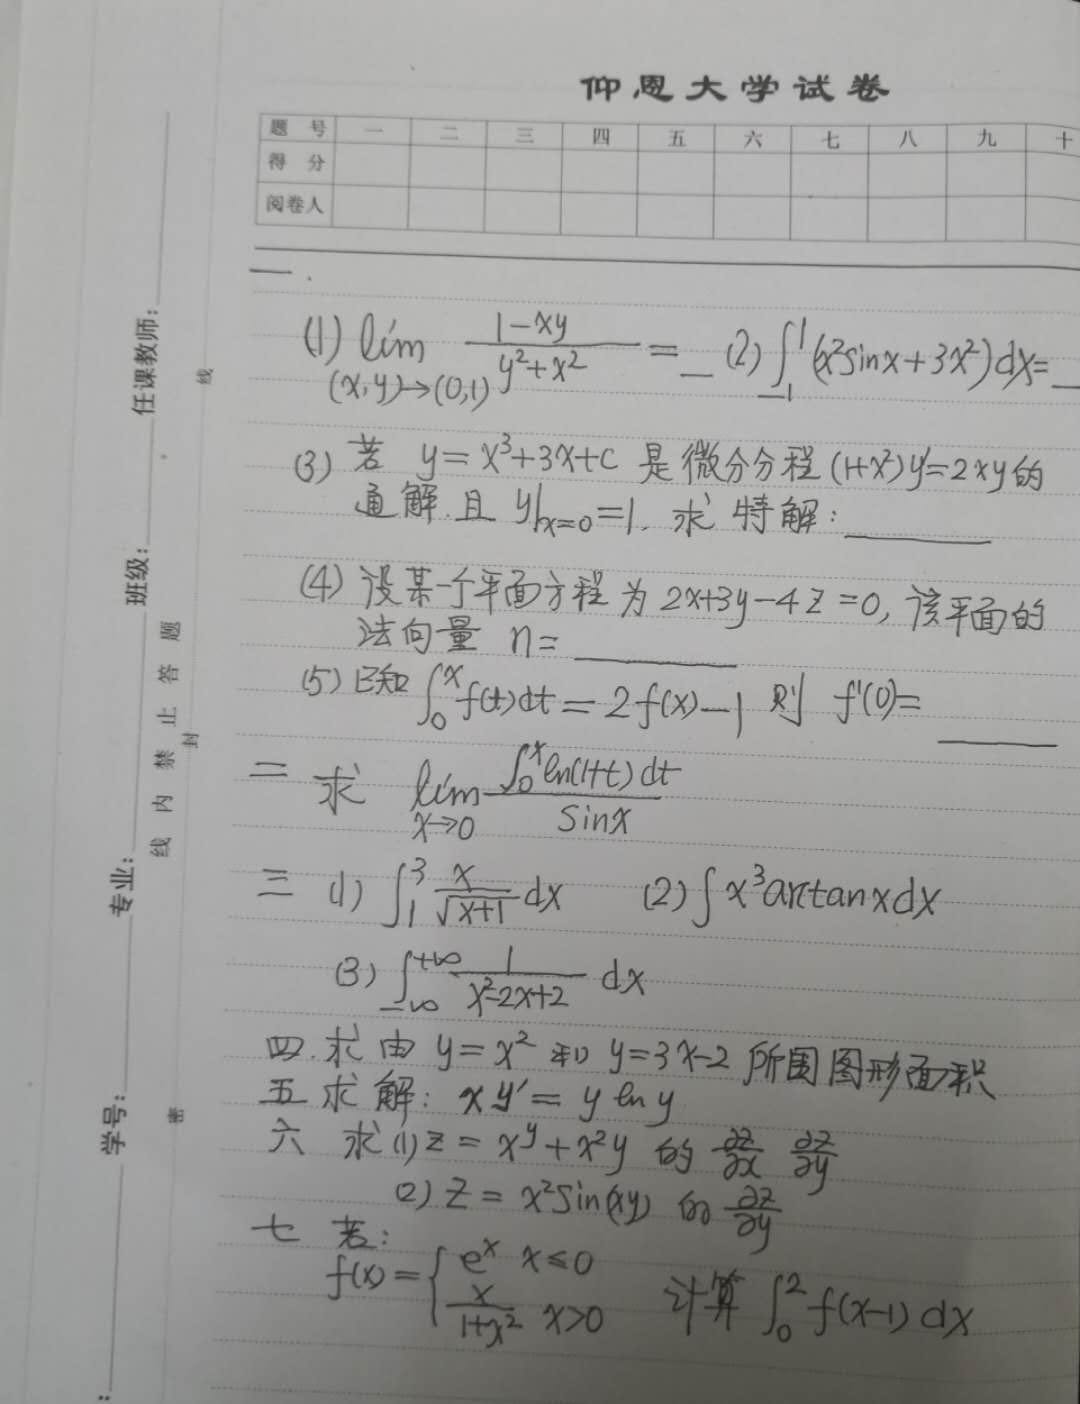 仰恩大学试卷
题号 一 二 三 四 五 六 七 八 九 十
得分
阅卷人
一.
(1) lim(x,y)→(0,1) (1-xy)/(y²+x²) = __ (2) ∫₋₁¹(x²sinx+3x²)dx=__
(3) 若 y=x³+3x+c 是微分分程(1+x²)y'=2xy的
通解.且 y|x=0=1. 求 特解:______
(4) 设某一个平面方程为 2x+3y-4z=0, 该平面的
法向量 n= ______
(5) 已知 ∫₀ˣf(t)dt=2f(x)-1 则 f'(0)= ______
二 求 lim x→0 ∫₀ˣln(1+t)dt/sinx
三 (1) ∫₁³ x/√(x+1) dx (2) ∫x³arctanxdx
(3) ∫₋∞⁺∞ 1/(x²-2x+2) dx
四.求由 y=x² 和 y=3x-2 所围图形面积
五 求解: xy'=y ln y
六 求(1) z=x^y+x²y 的 ∂z/∂x ∂z/∂y
(2) z=x²sin(xy) 的 ∂z/∂y
七 若:
f(x)={ eˣ x≤0
x/(1+x²) x>0 计算 ∫₀²f(x-1)dx
学号: 专业: 班级: 任课教师:
线内禁止答题
密 封 线